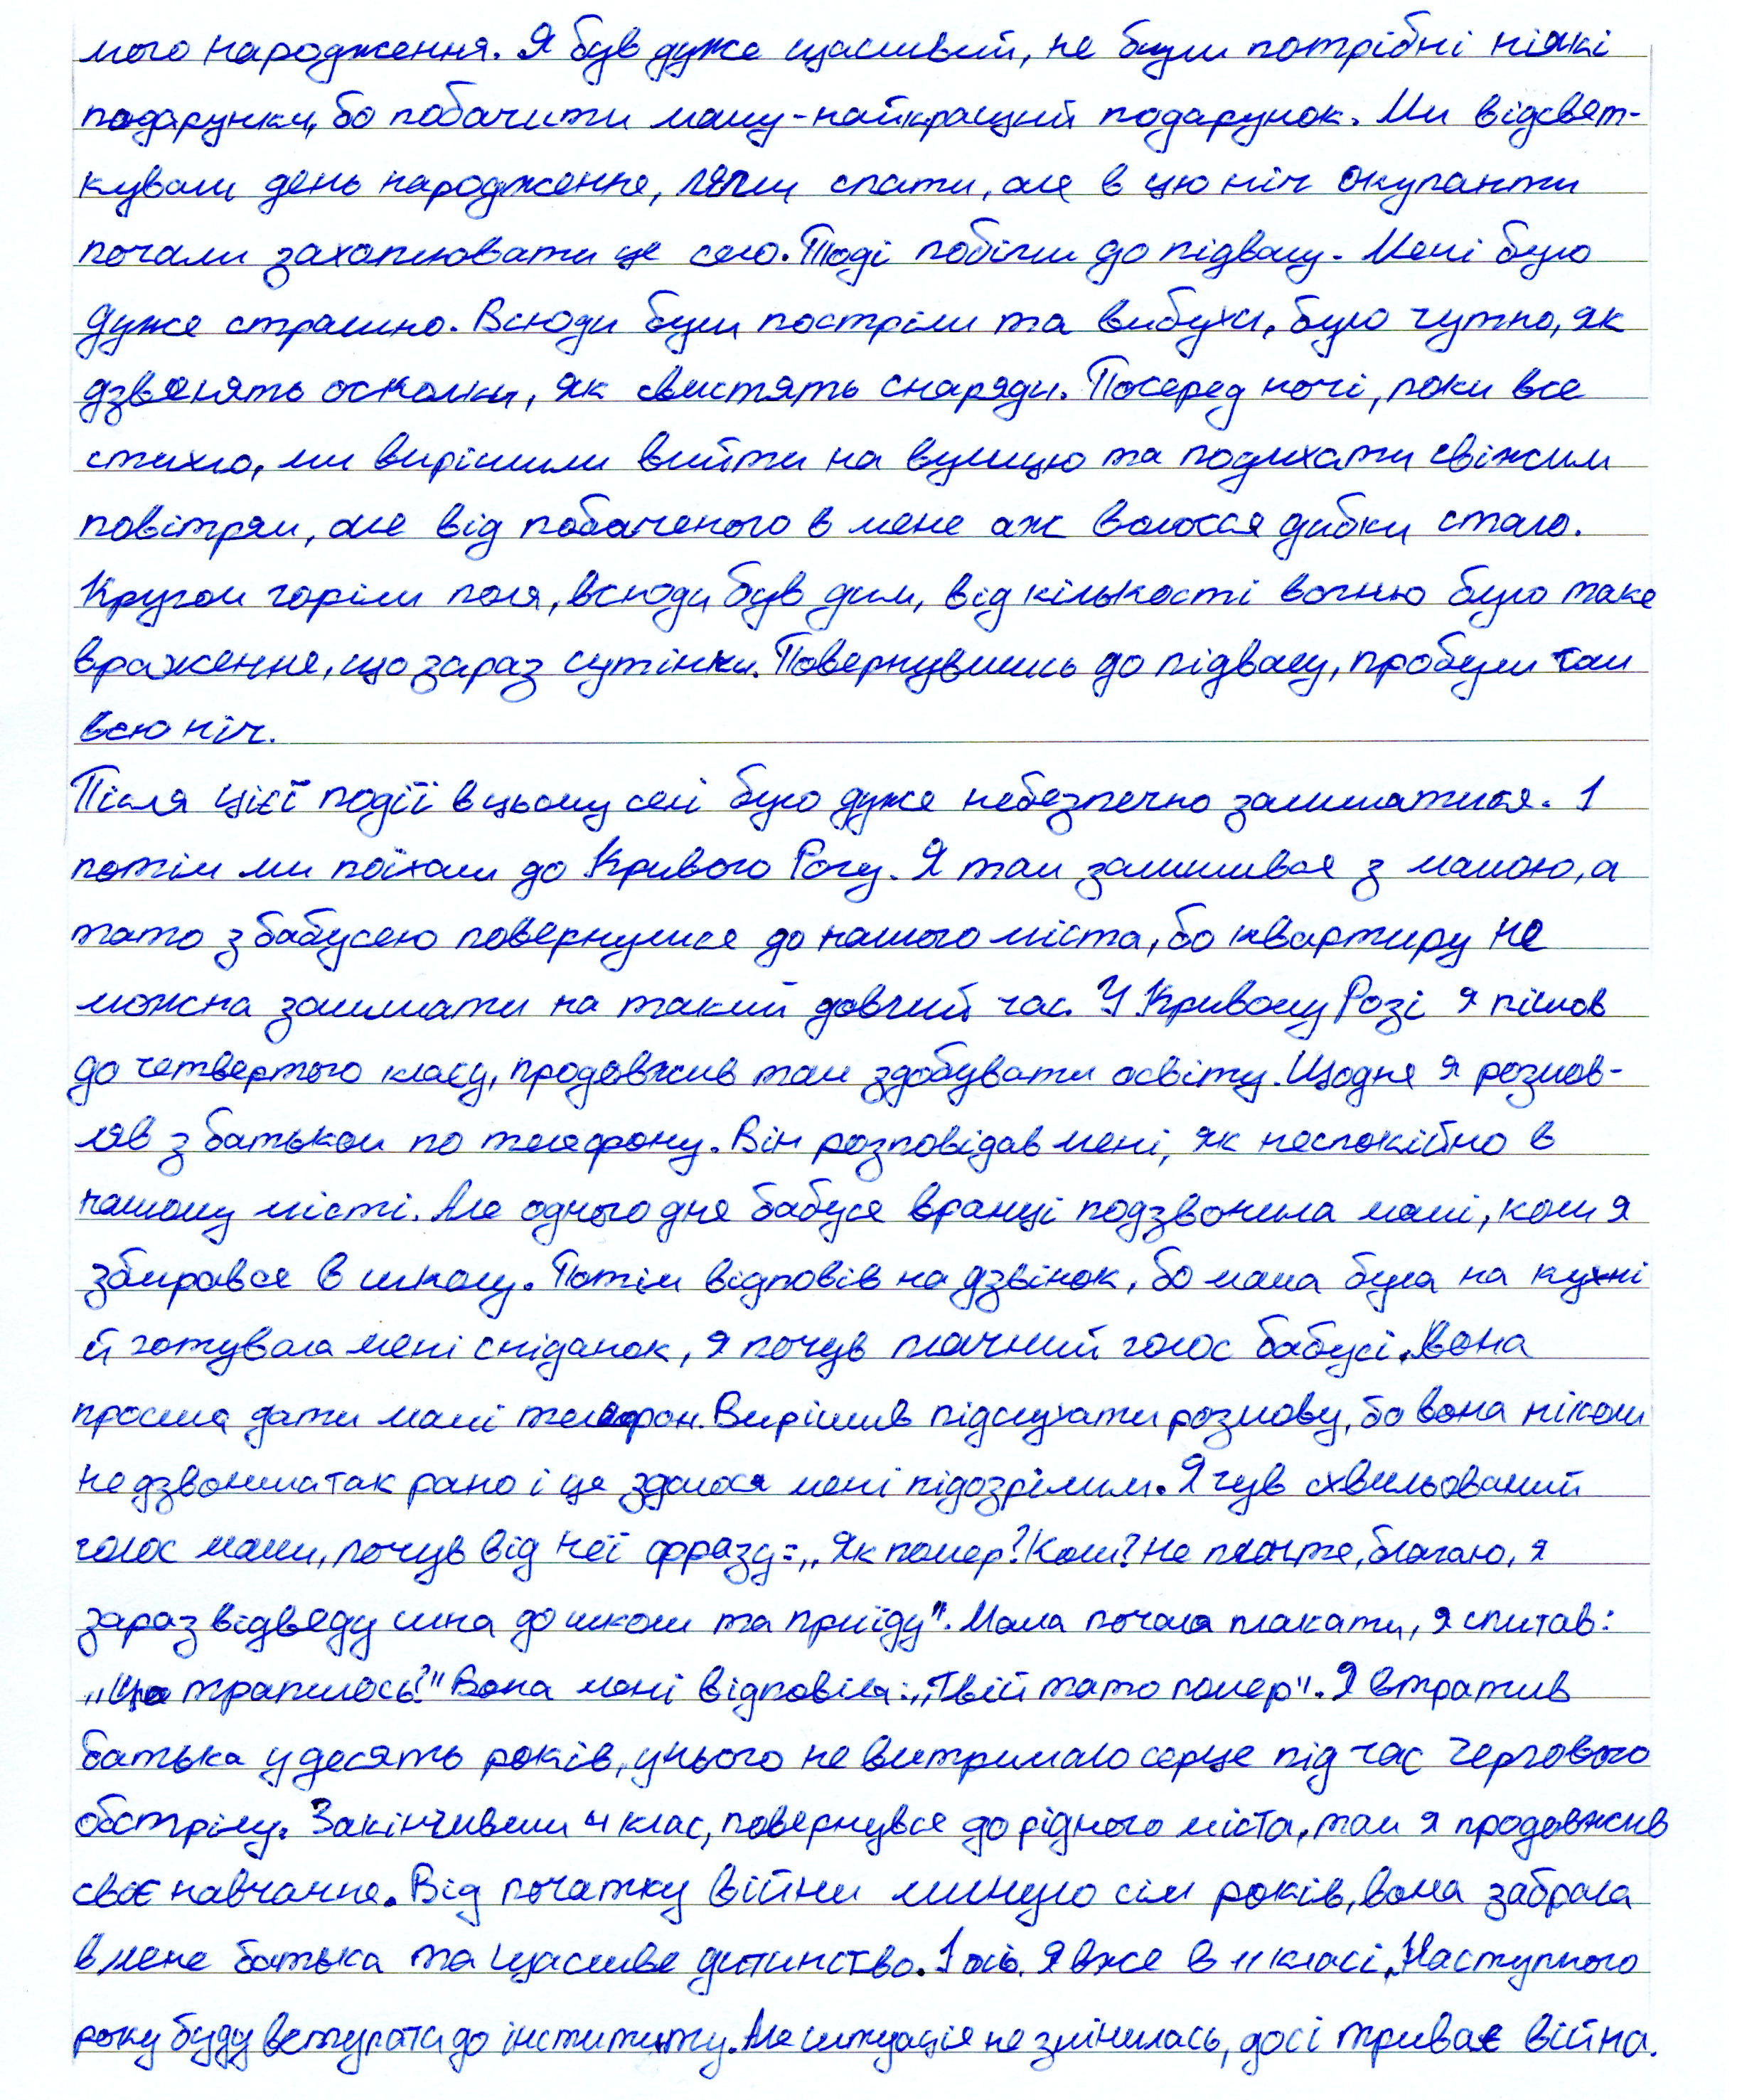 мого народження. Я був дуже щасливий, не були потрібні ніякі
подарунки, бо побачити маму-найкращий подарунок. Ми відсвят-
кували день народження, лягли спати, але в цю ніч окупанти
почали захоплювати це село. Тоді побігли до підвалу. Мені було
дуже страшно. Всюди були постріли та вибухи, було чутно, як
дзвенять осколки, як свистять снаряди. Посеред ночі, поки все
стихло, ми вирішили вийти на вулицю та подихати свіжим
повітрям, але від побаченого в мене аж волосся дибки стало.
Кругом горіли поля, всюди був дим, від кількості вогню було таке
враження, що зараз сутінки. Повернувшись до підвалу, пробули там
всю ніч.
Після цієї події в цьому селі було дуже небезпечно залишатися. І
потім ми поїхали до Кривого Рогу. Я там залишився з мамою, а
тато з бабусею повернулися до нашого міста, бо квартиру не
можна залишати на такий довгий час. У Кривому Розі я пішов
до четвертого класу, продовжив там здобувати освіту. Щодня я розмов-
ляв з батьком по телефону. Він розповідав мені, як неспокійно в
нашому місті. Але одного дня бабуся вранці подзвонила мамі, коли я
збирався в школу. Потім відповів на дзвінок, бо мама була на кухні
й готувала мені сніданок, я почув плачний голос бабусі. Вона
просила дати мамі телефон. Вирішив підслухати розмову, бо вона ніколи
не дзвонила так рано і це здалося мені підозрілим. Я чув схвильований
голос мами, почув від неї фразу: „Як помер? Коли? Не плачте, благаю, я
зараз відведу сина до школи та приїду". Мама почала плакати, я спитав:
„Що трапилось?" Вона мені відповіла: „Твій тато помер". Я втратив
батька у десять років, у нього не витримало серце під час чергового
обстрілу. Закінчивши 4 клас, повернувся до рідного міста, там я продовжив
своє навчання. Від початку війни минуло сім років, вона забрала
в мене батька та щасливе дитинство. І ось. Я вже в 11 класі. Наступного
року буду вступати до інституту. Але ситуація не змінилась, досі триває війна.